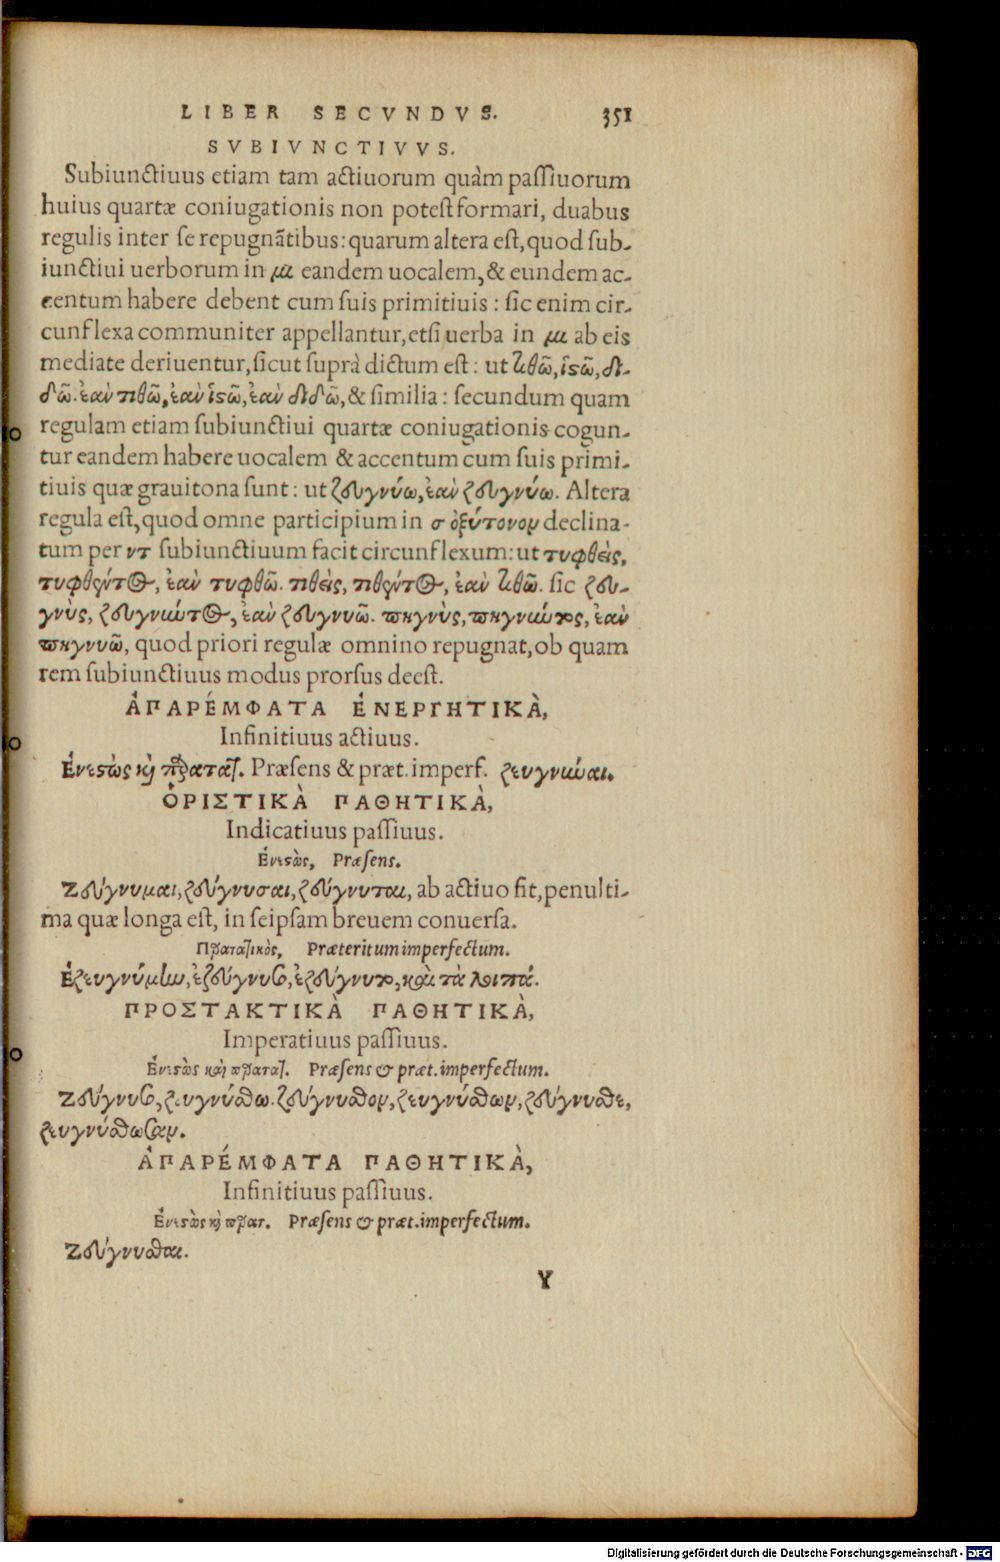 LIBER SECVNDVS. 351
SVBIVNCTIVVS.
Subiunctiuus etiam tam actiuorum quàm passiuorum
huius quartæ coniugationis non potest formari, duabus
regulis inter se repugnãtibus: quarum altera est, quod sub-
iunctiui uerborum in μι eandem uocalem, & eundem ac-
centum habere debent cum suis primitiuis: sic enim cir-
cunflexa communiter appellantur, etsi uerba in μι ab eis
mediate deriuentur, sicut suprà dictum est: ut τιθῶ, ἱστῶ, δι-
δῶ. ἐὰν τιθῶ, ἐὰν ἱστῶ, ἐὰν διδῶ, & similia: secundum quam
regulam etiam subiunctiui quartæ coniugationis cogun-
tur eandem habere uocalem & accentum cum suis primi-
tiuis quæ grauitona sunt: ut ζευγνύω, ἐὰν ζευγνύω. Altera
regula est, quod omne participium in σ ὀξύτονον declina-
tum per ντ subiunctiuum facit circunflexum: ut τυφθεὶς,
τυφθέντος, ἐὰν τυφθῶ. τιθεὶς, τιθέντος, ἐὰν τιθῶ. sic ζευ-
γνὺς, ζευγνύντος, ἐὰν ζευγνυῶ. πηγνὺς, πηγνύντος, ἐὰν
πηγνυῶ, quod priori regulæ omnino repugnat, ob quam
rem subiunctiuus modus prorsus deest.
ἈΠΑΡΈΜΦΑΤΑ ἘΝΕΡΓΗΤΙΚᾺ,
Infinitiuus actiuus.
Ἐνεστὼς καὶ παρατατ. Præsens & præt. imperf. ζευγνύναι.
ὉΡΙΣΤΙΚᾺ ΠΑΘΗΤΙΚᾺ,
Indicatiuus passiuus.
Ἐνεστὼς, Præsens.
Ζεύγνυμαι, ζεύγνυσαι, ζεύγνυται, ab actiuo fit, penulti-
ma quæ longa est, in seipsam breuem conuersa.
Παρατατικὸς, Præteritum imperfectum.
Ἐζευγνύμην, ἐζεύγνυσο, ἐζεύγνυτο, καὶ τὰ λοιπά.
ΠΡΟΣΤΑΚΤΙΚᾺ ΠΑΘΗΤΙΚᾺ,
Imperatiuus passiuus.
Ἐνεστὼς καὶ παρατατ. Præsens & præt. imperfectum.
Ζεύγνυσο, ζευγνύσθω. ζεύγνυσθον, ζευγνύσθων, ζεύγνυσθε,
ζευγνύσθωσαν.
ἈΠΑΡΈΜΦΑΤΑ ΠΑΘΗΤΙΚᾺ,
Infinitiuus passiuus.
Ἐνεστὼς καὶ παρατ. Præsens & præt. imperfectum.
Ζεύγνυσθαι.
Y
Digitalisierung gefördert durch die Deutsche Forschungsgemeinschaft - DFG